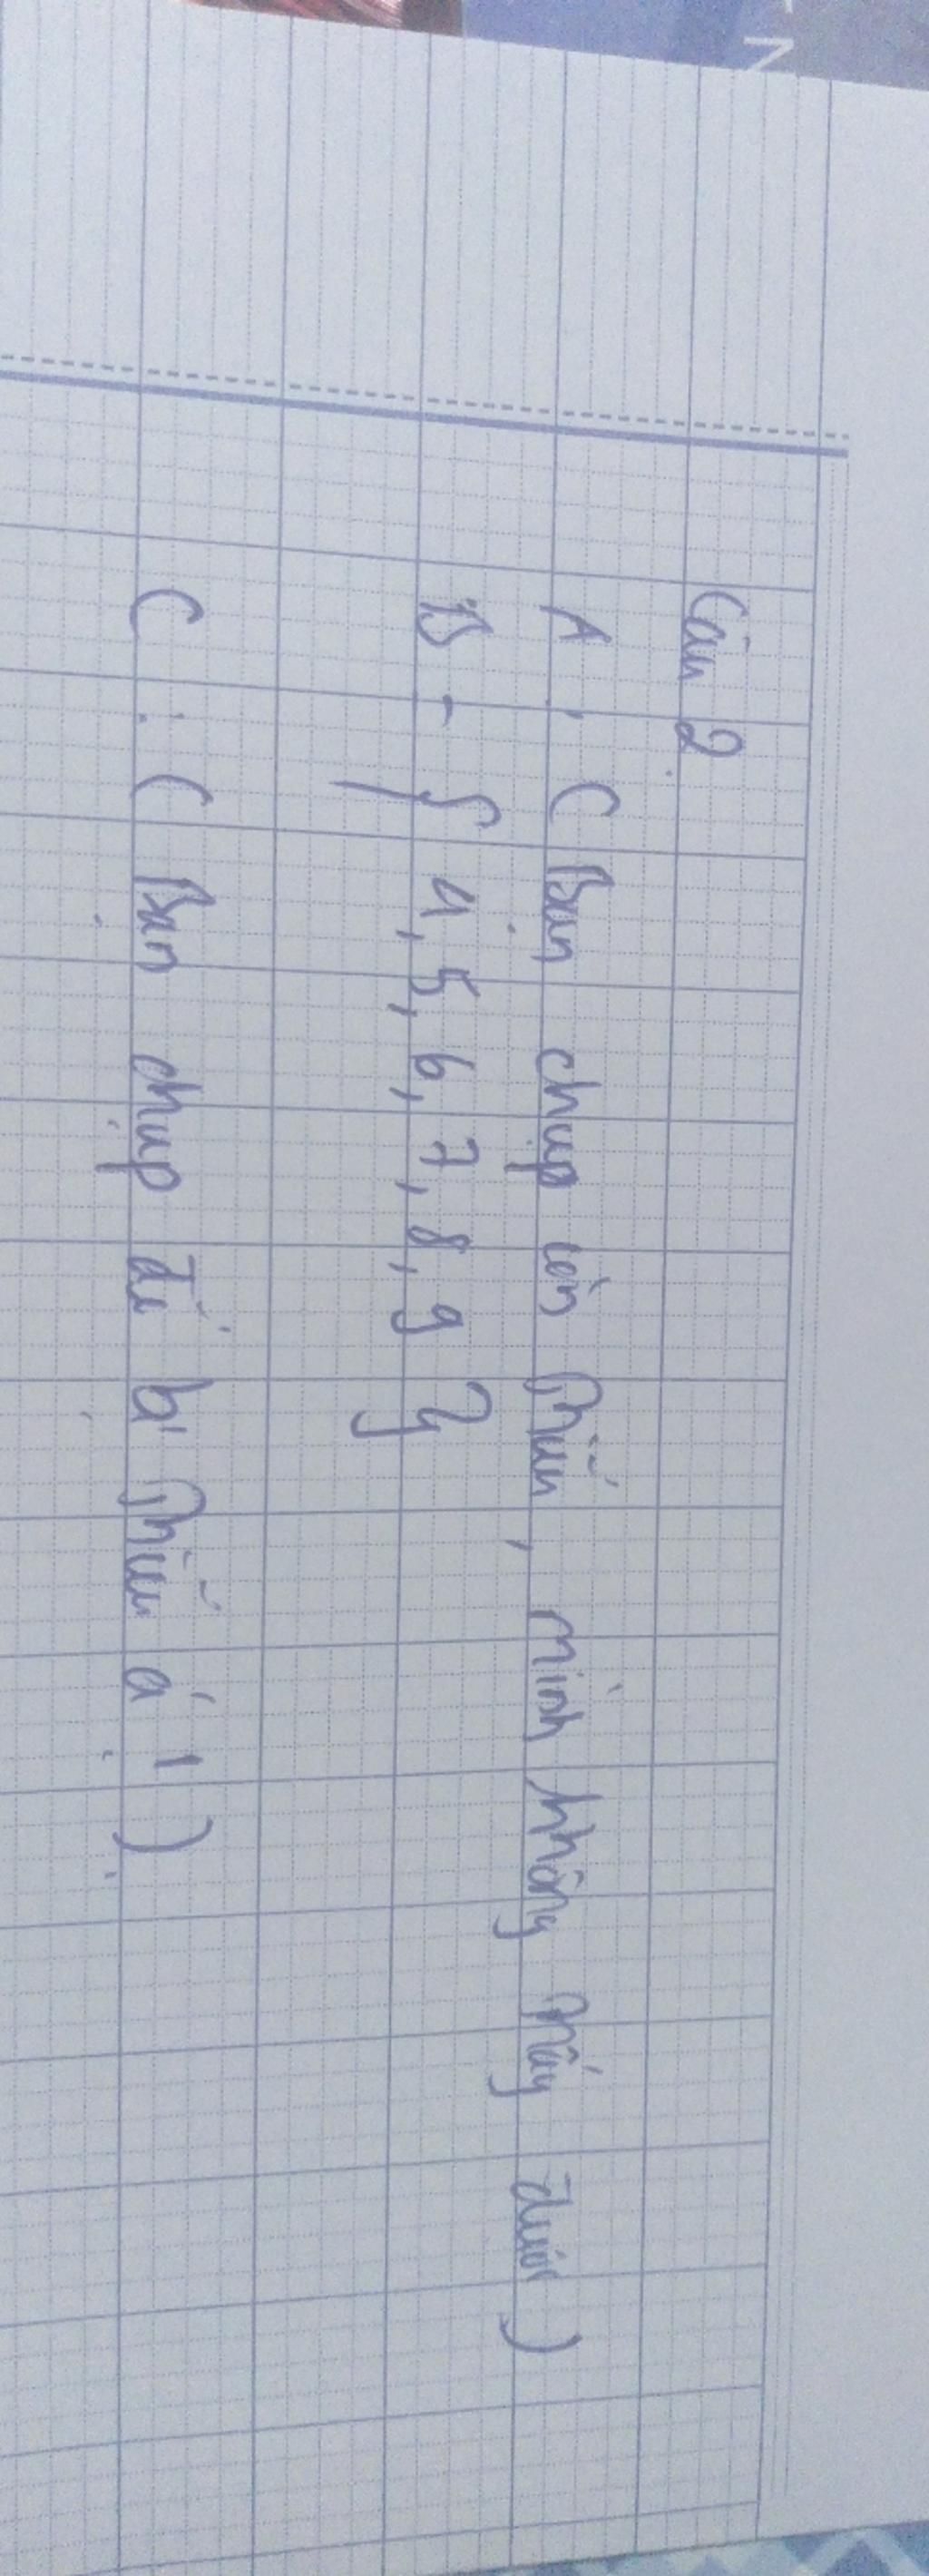 Câu 2
A, ( Bạn chụp còn thiếu, mình không thấy được )
B = { 4, 5, 6, 7, 8, 9 }
C : ( Bạn chụp đề bị thiếu á ! )
N